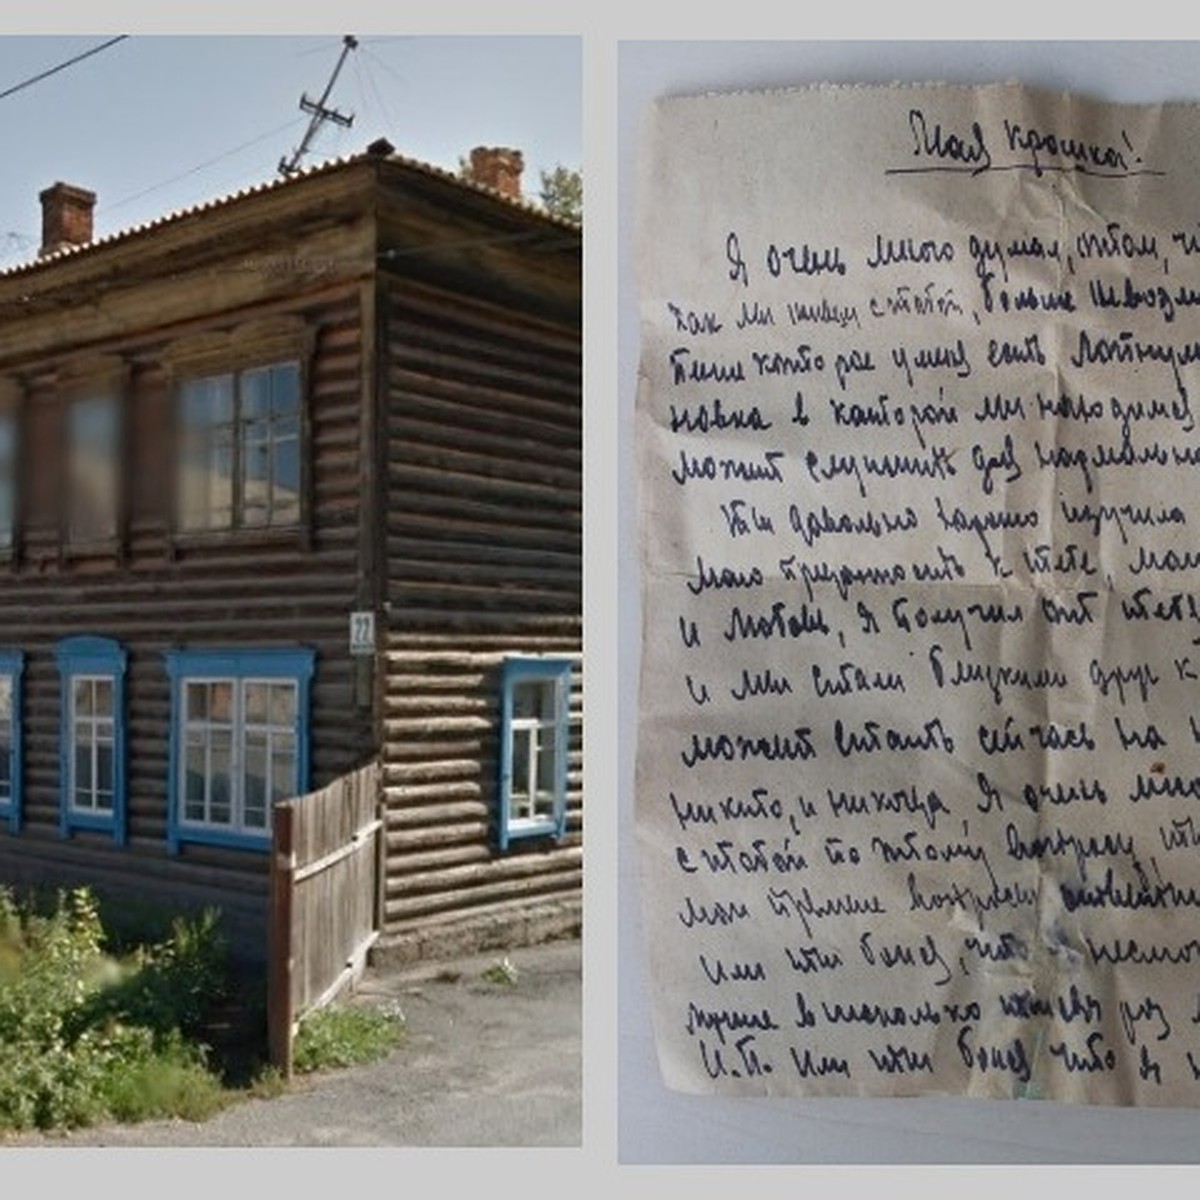 22
Моя крошка!
Я очень много думал, о том, чт
как мы живем с тобой, больше невозм
которое у меня есть
новка в которой мы находимся
может служить для нормально
Ты довольно хорошо изучила
мою преданность к тебе, мою
и любовь, я получил от тебя
и мы стали близкими друг к
может встать сейчас на н
никто, и никогда. Я очень мно
с тобой по этому вопросу, ты
мои прямые вопросы ответ
или ты боишься, что несмот
лучше в несколько раз
И.П. Или ты боишься что я н